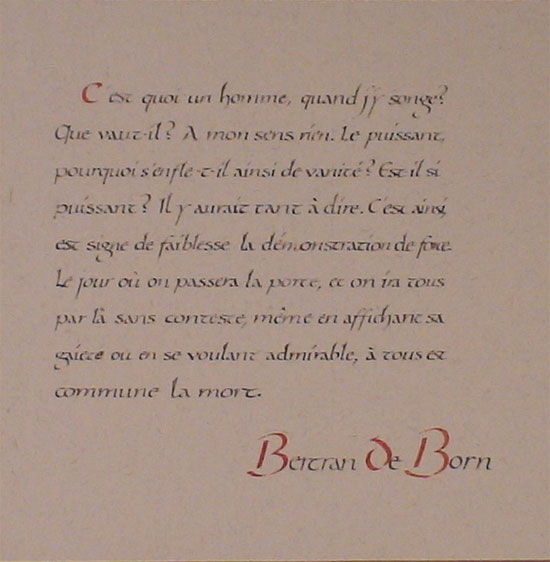 C'est quoi un homme, quand j'y songe?
Que vaut-il? A mon sens rien. Le puissant,
pourquoi s'enfle-t-il ainsi de vanité? Est il si
puissant? Il y aurait tant à dire. C'est ainsi,
est signe de faiblesse la démonstration de force.
Le jour où on passera la porte, et on ira tous
par là sans conteste, même en affichant sa
gaieté ou en se voulant admirable, à tous est
commune la mort.
Bertran de Born